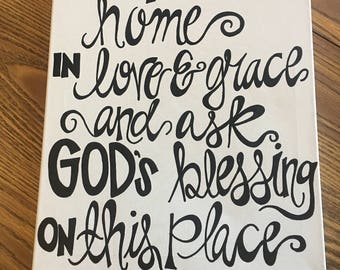 home
IN love & grace
and ask
GOD's blessing
ON this place